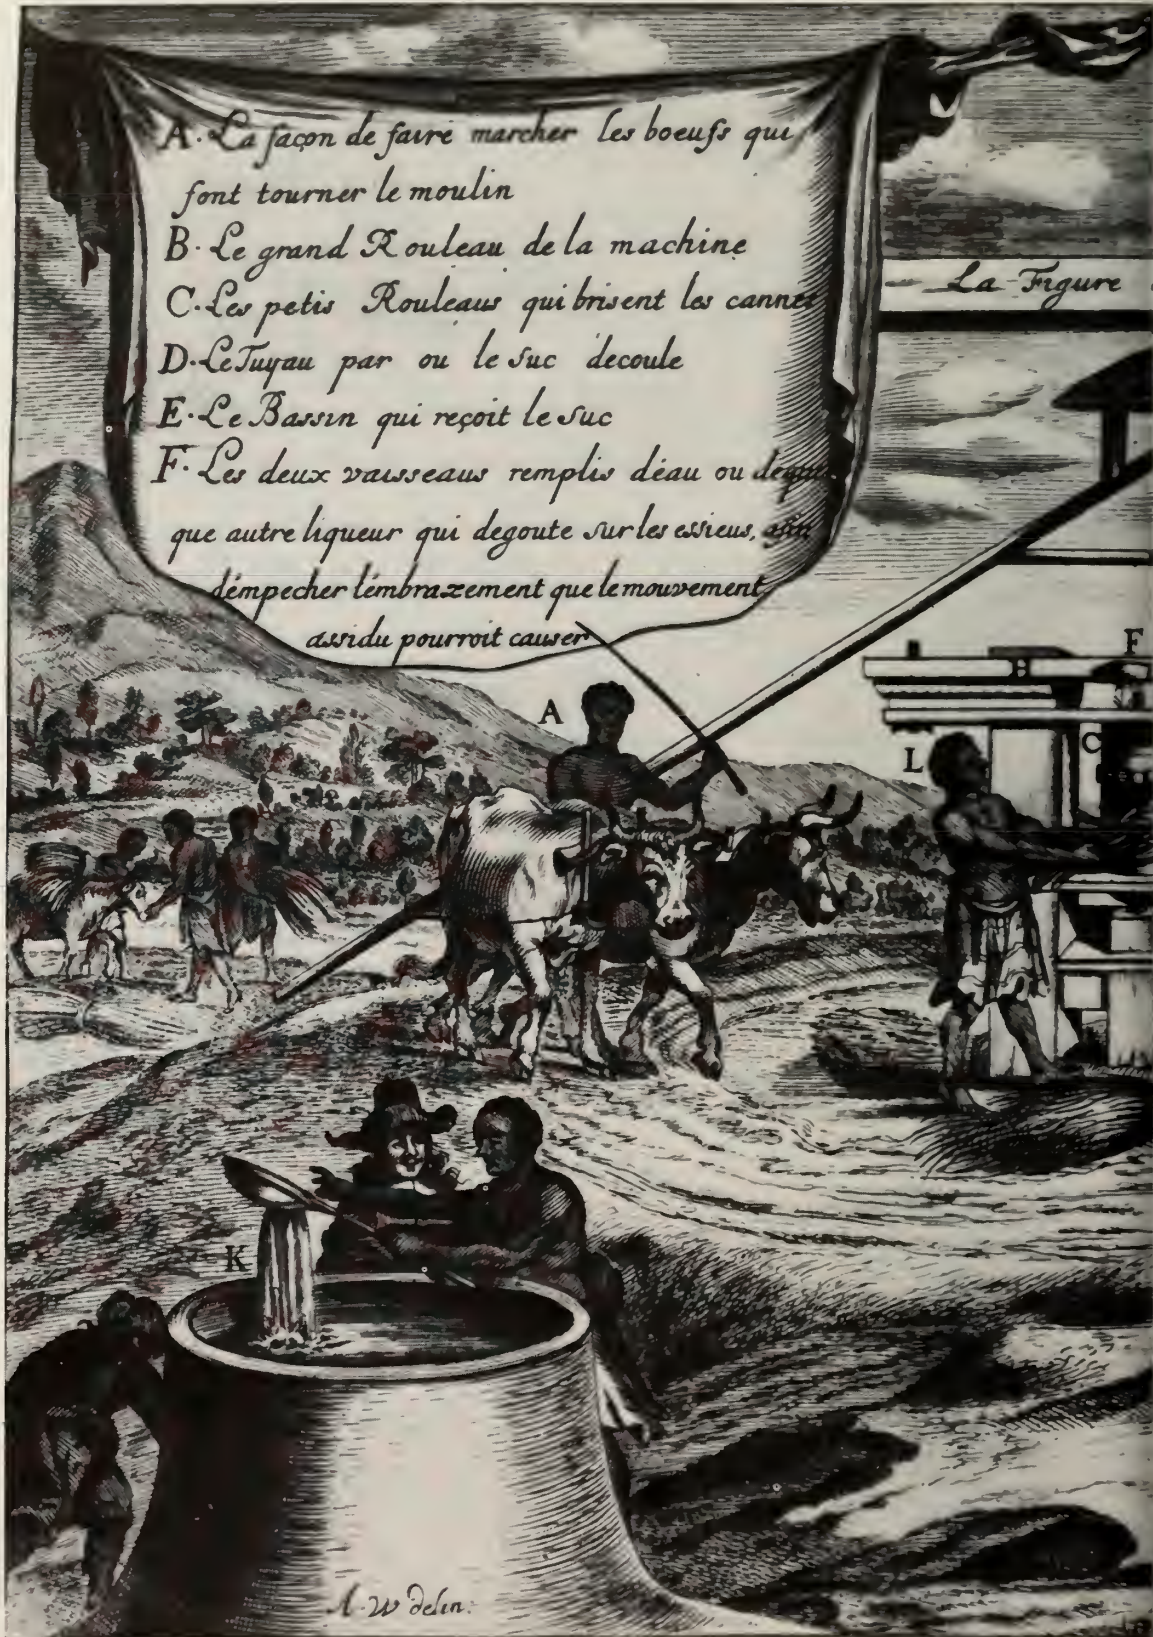 A. La façon de faire marcher les boeufs qui
font tourner le moulin
B. Le grand Rouleau de la machine
C. Les petis Rouleaus qui brisent les cannes
D. Le Tuyau par ou le suc decoule
E. Le Bassin qui reçoit le suc
F. Les deux vaisseaus remplis déau ou
que autre liqueur qui degoute sur les essieus, afin
démpecher lémbrazement que le mouvement
assidu pourroit causer
La Figure
F
H
A
L
C
K
A. W delin.